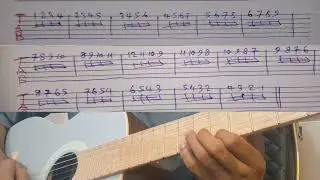 1 2 3 4 2 3 4 5 3 4 5 6 4 5 6 7 5 6 7 8 6 7 8 9
7 8 9 10 8 9 10 11 12 11 10 9 11 10 9 8 10 9 8 7 9 8 7 6
8 7 6 5 7 6 5 4 6 5 4 3 5 4 3 2 4 3 2 1